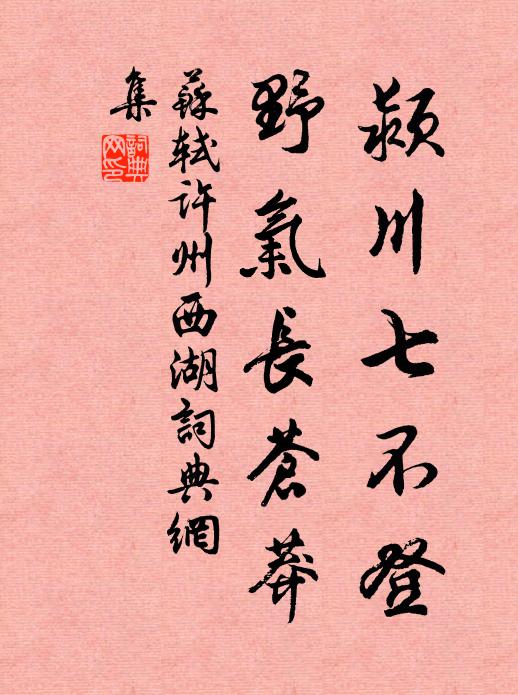 潁川七不登
野氣長蒼莽
蘇軾許州西湖詞典網
集
詞典網印